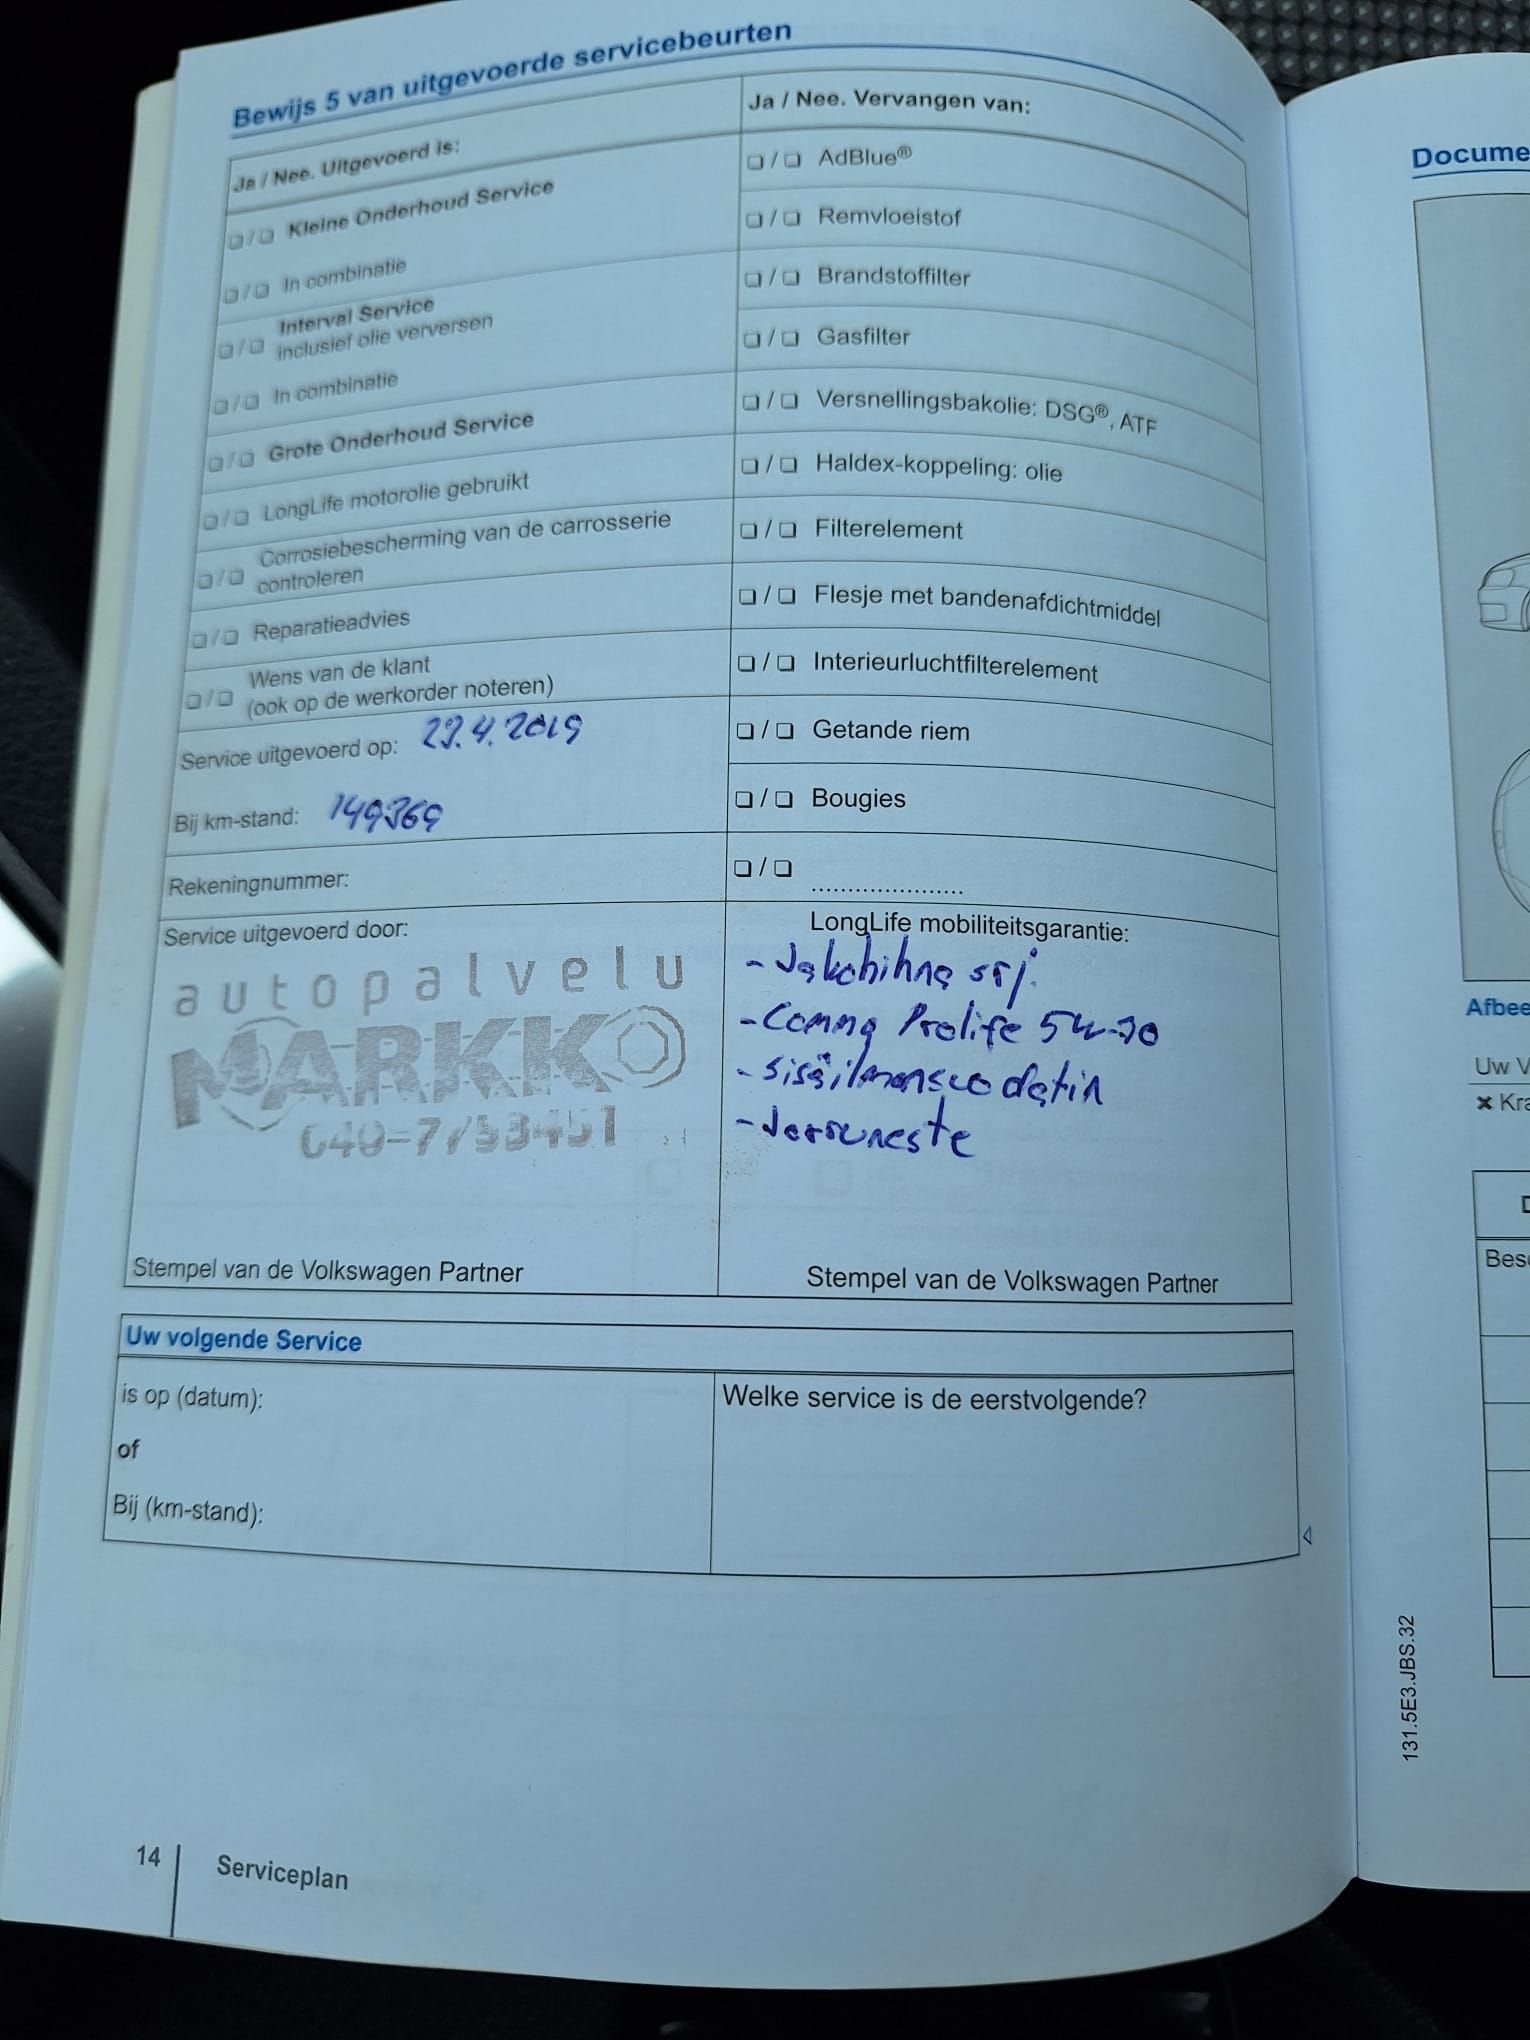 Bewijs 5 van uitgevoerde servicebeurten
Ja / Nee. Uitgevoerd is:
❏ / ❏ Kleine Onderhoud Service
❏ / ❏ In combinatie
❏ / ❏ Interval Service
inclusief olie verversen
❏ / ❏ In combinatie
❏ / ❏ Grote Onderhoud Service
❏ / ❏ LongLife motorolie gebruikt
❏ / ❏ Corrosiebescherming van de carrosserie
controleren
❏ / ❏ Reparatieadvies
❏ / ❏ Wens van de klant
(ook op de werkorder noteren)
Service uitgevoerd op: 29.4.2019
Bij km-stand: 149369
Rekeningnummer:
Service uitgevoerd door:
autopalvelu
MARKKO
Stempel van de Volkswagen Partner
Ja / Nee. Vervangen van:
❏ / ❏ AdBlue®
❏ / ❏ Remvloeistof
❏ / ❏ Brandstoffilter
❏ / ❏ Gasfilter
❏ / ❏ Versnellingsbakolie: DSG®, ATF
❏ / ❏ Haldex-koppeling: olie
❏ / ❏ Filterelement
❏ / ❏ Flesje met bandenafdichtmiddel
❏ / ❏ Interieurluchtfilterelement
❏ / ❏ Getande riem
❏ / ❏ Bougies
❏ / ❏ .....................
LongLife mobiliteitsgarantie:
- Jakohihna srj.
- Comma Prolife 5W-30
- sisäilmansuodatin
- Jarruneste
Stempel van de Volkswagen Partner
Uw volgende Service
is op (datum):
of
Bij (km-stand):
Welke service is de eerstvolgende?
14 Serviceplan
Docume
Afbee
Uw V
✖ Kra
Besc
131.5E3.JBS.32